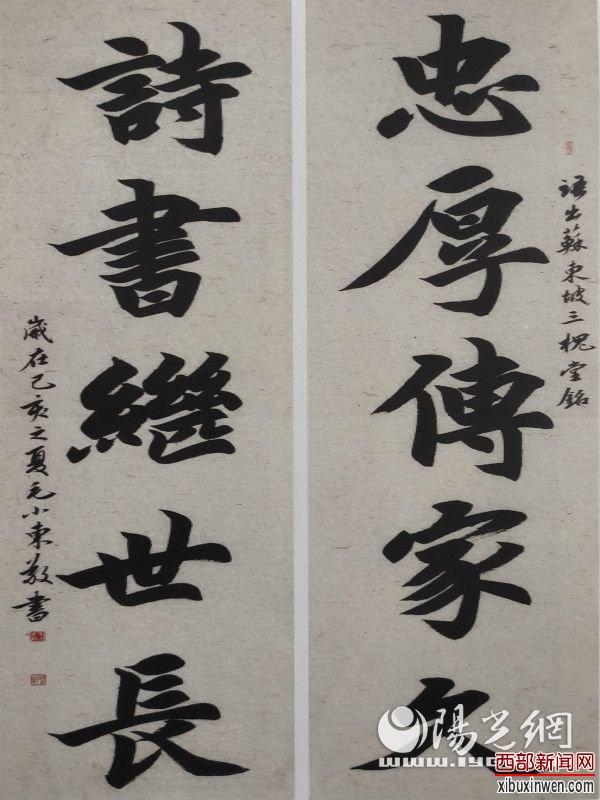 忠厚傳家久
語出蘇東坡三槐堂銘
詩書繼世長
歲在己亥之夏毛小東敬書
陽光網
西部新闻网
xibuxinwen.com